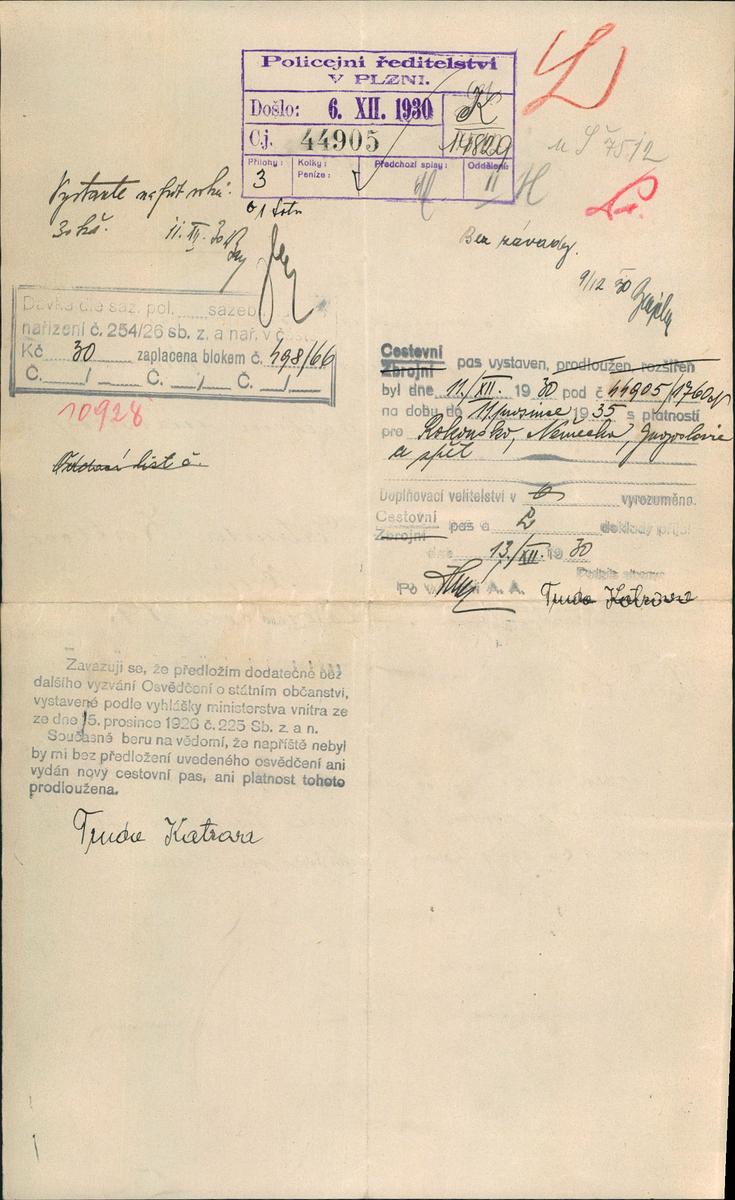 Policejní ředitelství
V PLZNI.
Došlo: 6. XII. 1930 K
Č.j. 44905 14829
Přílohy: 3 Kolky: Peníze: Předchozí spisy: Oddělení: II
7512
Vystavte na pět roků.
30 kč. 11. XII. 30
Bez závady.
9/12 30
Dávka dle saz. pol. sazeb.
nařízení č. 254/26 sb. z. a nař. v č
Kč 30 zaplacena blokem č. 498/66
Č. / Č. / Č. /
10928
Oddací list č.
Cestovní
Zbrojní pas vystaven, prodloužen, rozšířen
byl dne 11./XII. 1930 pod č 44905/1760
na dobu do 11. prosince 1935 s platností
pro Rakousko, Německo, Jugoslavie
a zpět
Doplňovací velitelství v vyrozuměno.
Cestovní
Zbrojní pas a 2 doklady přijal
dne 13./XII. 1930
Podpis strany
A. A.
Zavazuji se, že předložím dodatečně bez
dalšího vyzvání Osvědčení o státním občanství,
vystavené podle vyhlášky ministerstva vnitra ze
ze dne 15. prosince 1926 č. 225 Sb. z. a n.
Současně beru na vědomí, že napříště nebyl
by mi bez předložení uvedeného osvědčení ani
vydán nový cestovní pas, ani platnost tohoto
prodloužena.